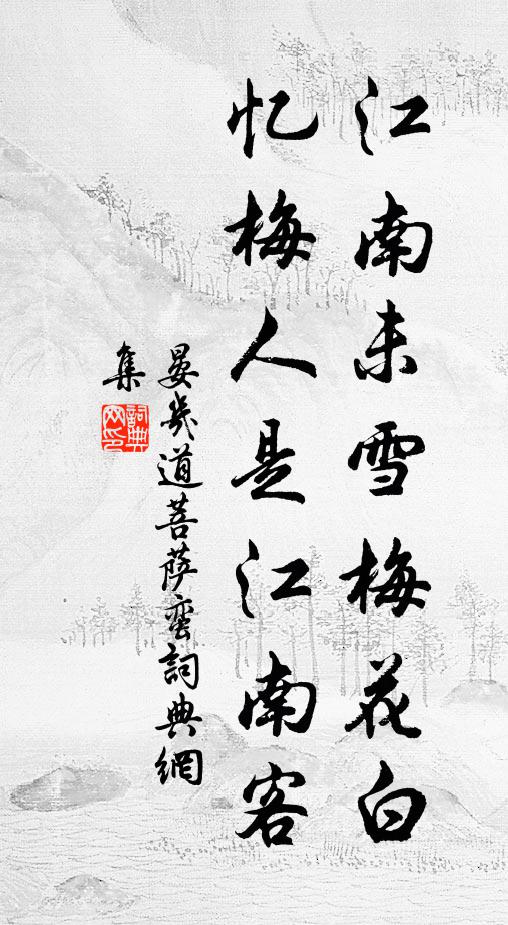 江南未雪梅花白
忆梅人是江南客
晏几道菩萨蛮詞典網
集
詞典网印